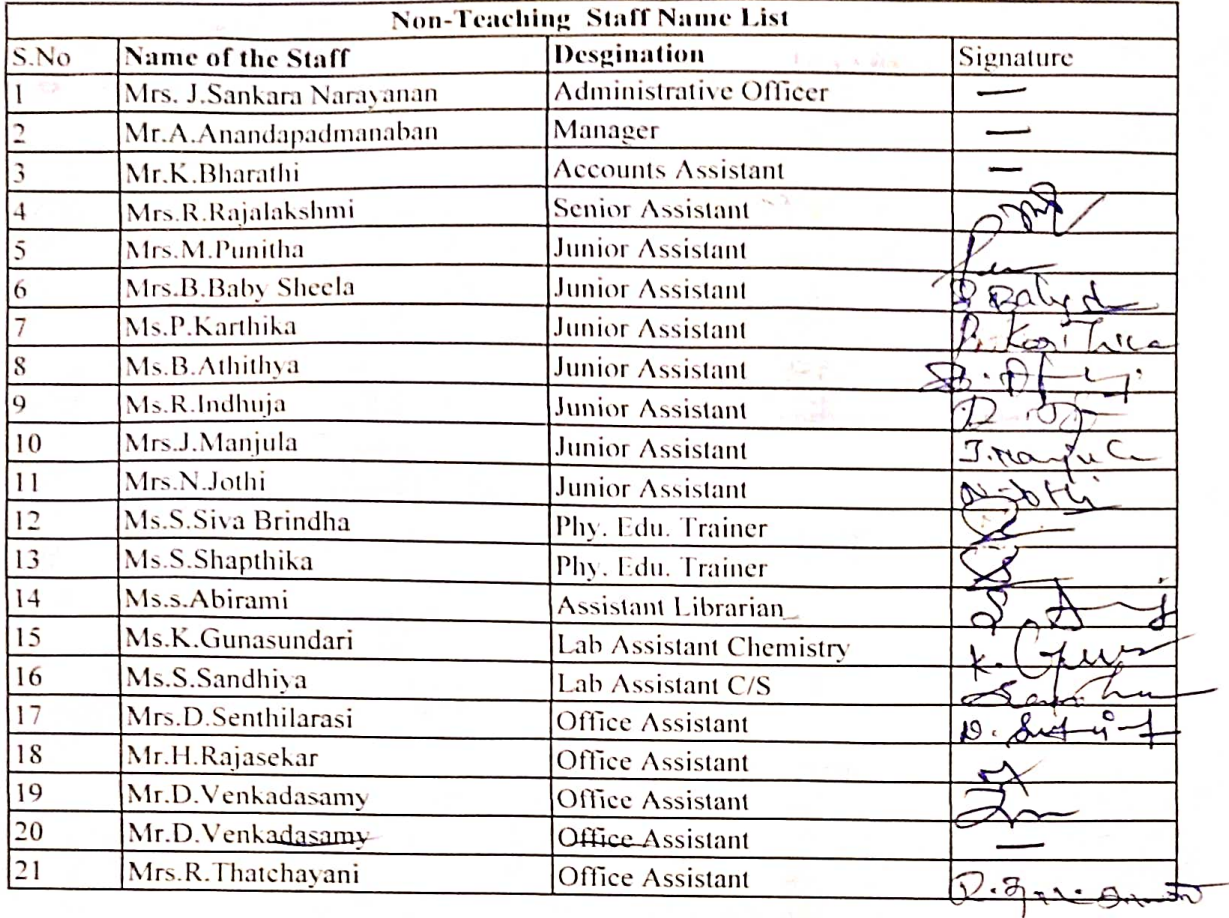 Non-Teaching Staff Name List
S.No Name of the Staff Desgination Signature
1 Mrs. J.Sankara Narayanan Administrative Officer —
2 Mr.A.Anandapadmanaban Manager —
3 Mr.K.Bharathi Accounts Assistant —
4 Mrs.R.Rajalakshmi Senior Assistant
5 Mrs.M.Punitha Junior Assistant
6 Mrs.B.Baby Sheela Junior Assistant
7 Ms.P.Karthika Junior Assistant P. Karthica
8 Ms.B.Athithya Junior Assistant
9 Ms.R.Indhuja Junior Assistant
10 Mrs.J.Manjula Junior Assistant J.Manjula
11 Mrs.N.Jothi Junior Assistant N-Jothi
12 Ms.S.Siva Brindha Phy. Edu. Trainer
13 Ms.S.Shapthika Phy. Edu. Trainer
14 Ms.s.Abirami Assistant Librarian
15 Ms.K.Gunasundari Lab Assistant Chemistry
16 Ms.S.Sandhiya Lab Assistant C/S
17 Mrs.D.Senthilarasi Office Assistant
18 Mr.H.Rajasekar Office Assistant
19 Mr.D.Venkadasamy Office Assistant
20 Mr.D.Venkadasamy Office Assistant —
21 Mrs.R.Thatchayani Office Assistant